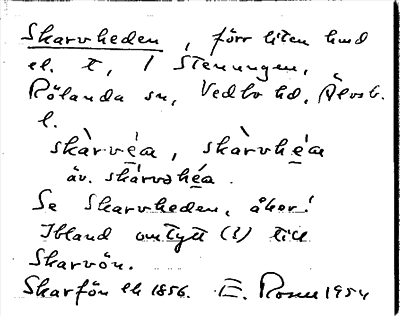 Skarvheden, förr liten hmd
el. t, i Stenungen,
Rölanda sn, Vedbo hd, Älvsb.
l.
skàrvéa, skàrvhéa
äv. skárvehéa.
Se Skarvheden, åker!
Ibland omtytt (?) till
Skarvön.
Skarfön ek 1856. E. Rosell 1954